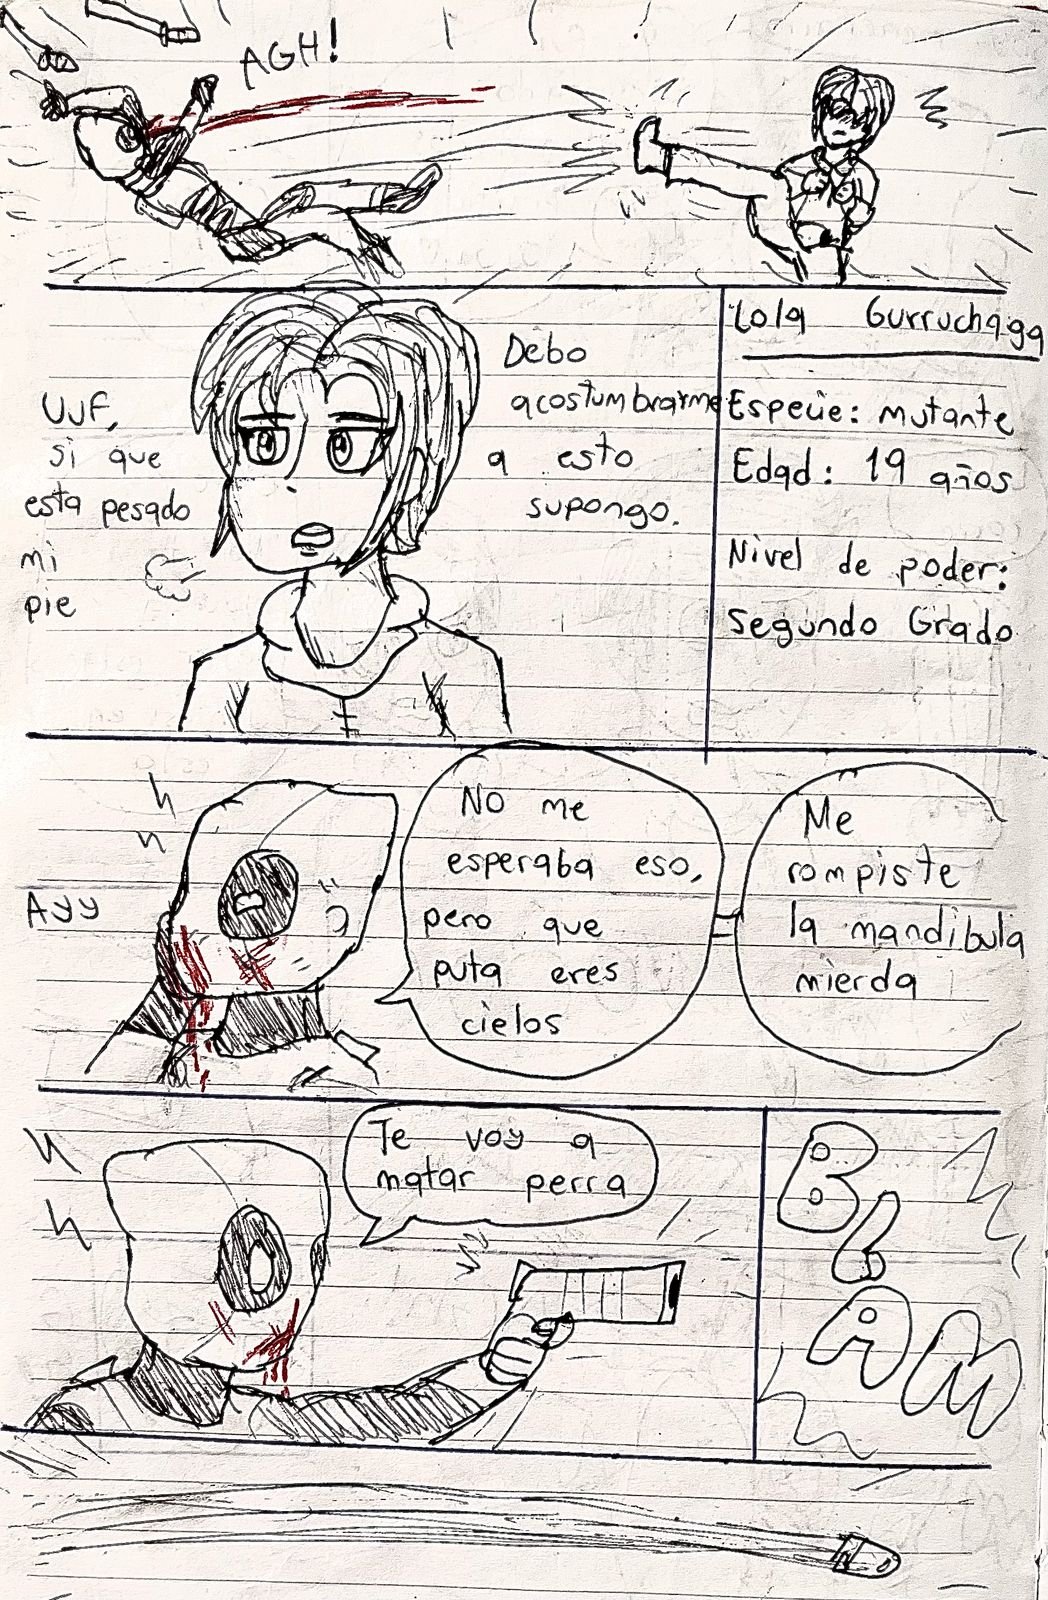 AGH!
Uuf,
si que
esta pesado
mi
pie
Debo
acostumbrarme
a esto
supongo.
Lola Gurruchaga
Especie: mutante
Edad: 19 años
Nivel de poder:
Segundo Grado
Ayy
No me
esperaba eso,
pero que
puta eres
cielos
Me
rompiste
la mandibula
mierda
Te voy a
matar perra
BLAM